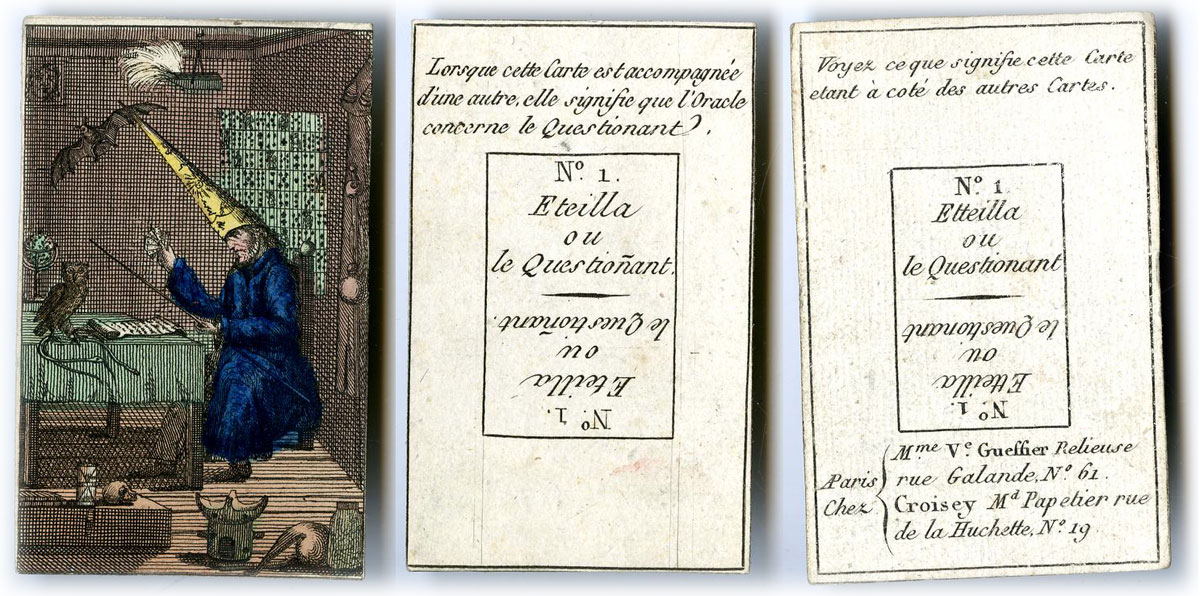 Lorsque cette Carte est accompagnée
d'une autre, elle signifie que l'Oracle
concerne le Questionant.
Nº. 1.
Eteilla
ou
le Questioñant.
le Questioñant.
ou
Eteilla
Nº. 1.
Voyez ce que signifie cette Carte
etant à coté des autres Cartes.
Nº. 1
Etteilla
ou
le Questionant
le Questionant
ou
Etteilla
Nº. 1.
AParis
Chez
Mme. Ve. Gueffier Relieuse
rue Galande, Nº. 61.
Croisey Md. Papetier rue
de la Huchette, Nº. 19.